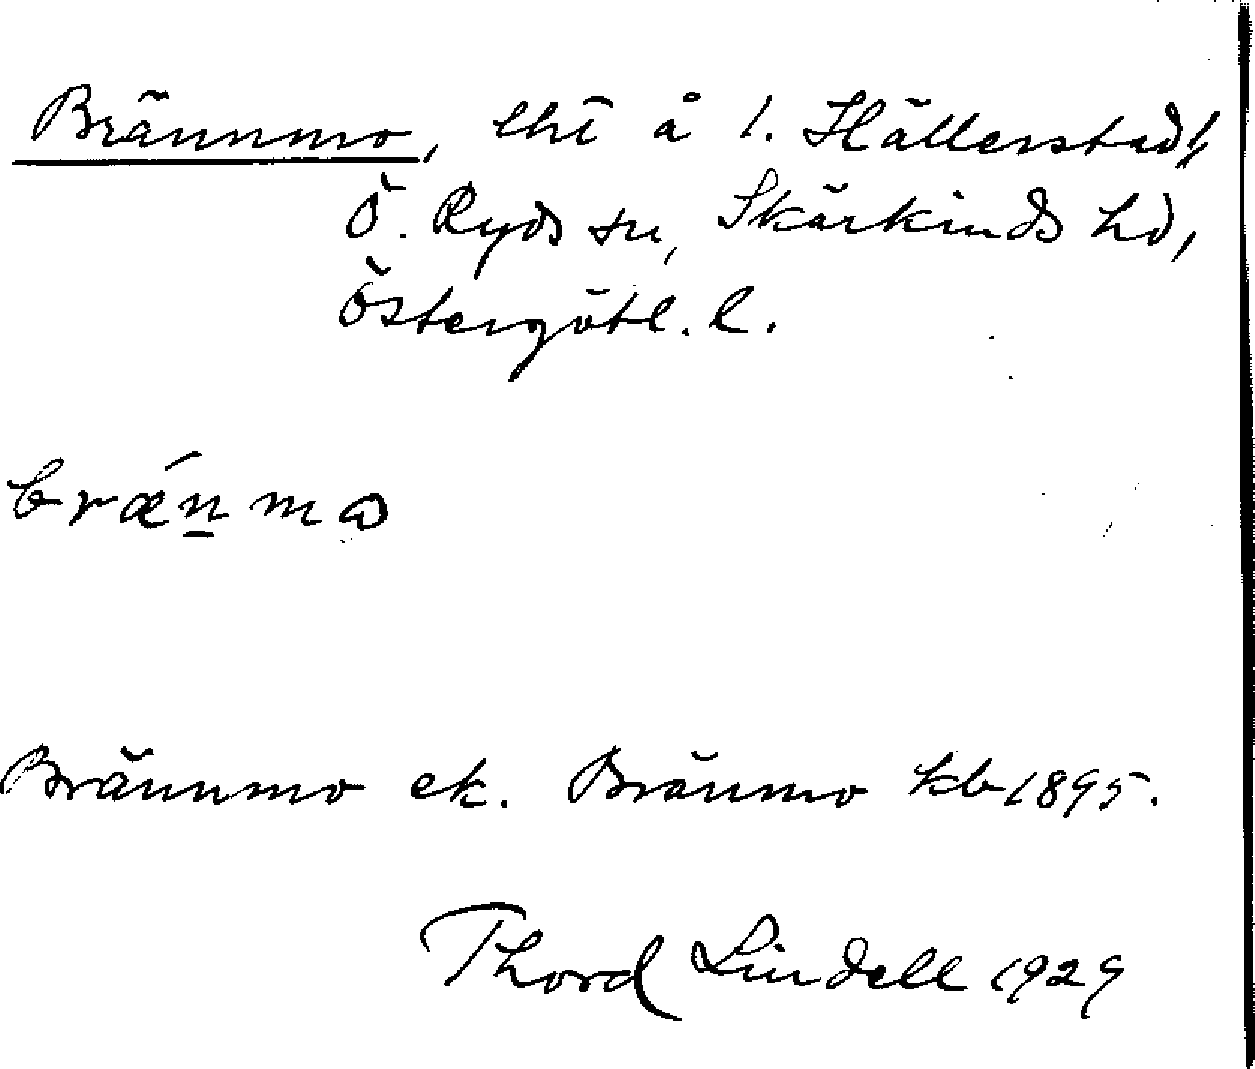 Brännmo, lht å 1. Hällerstad,
Ö. Ryds sn, Skärkinds hd,
Östergötl. l.
bræ´n̲mɷ
Brännmo ek. Bränmo kb 1895.
Thord Lindell 1929